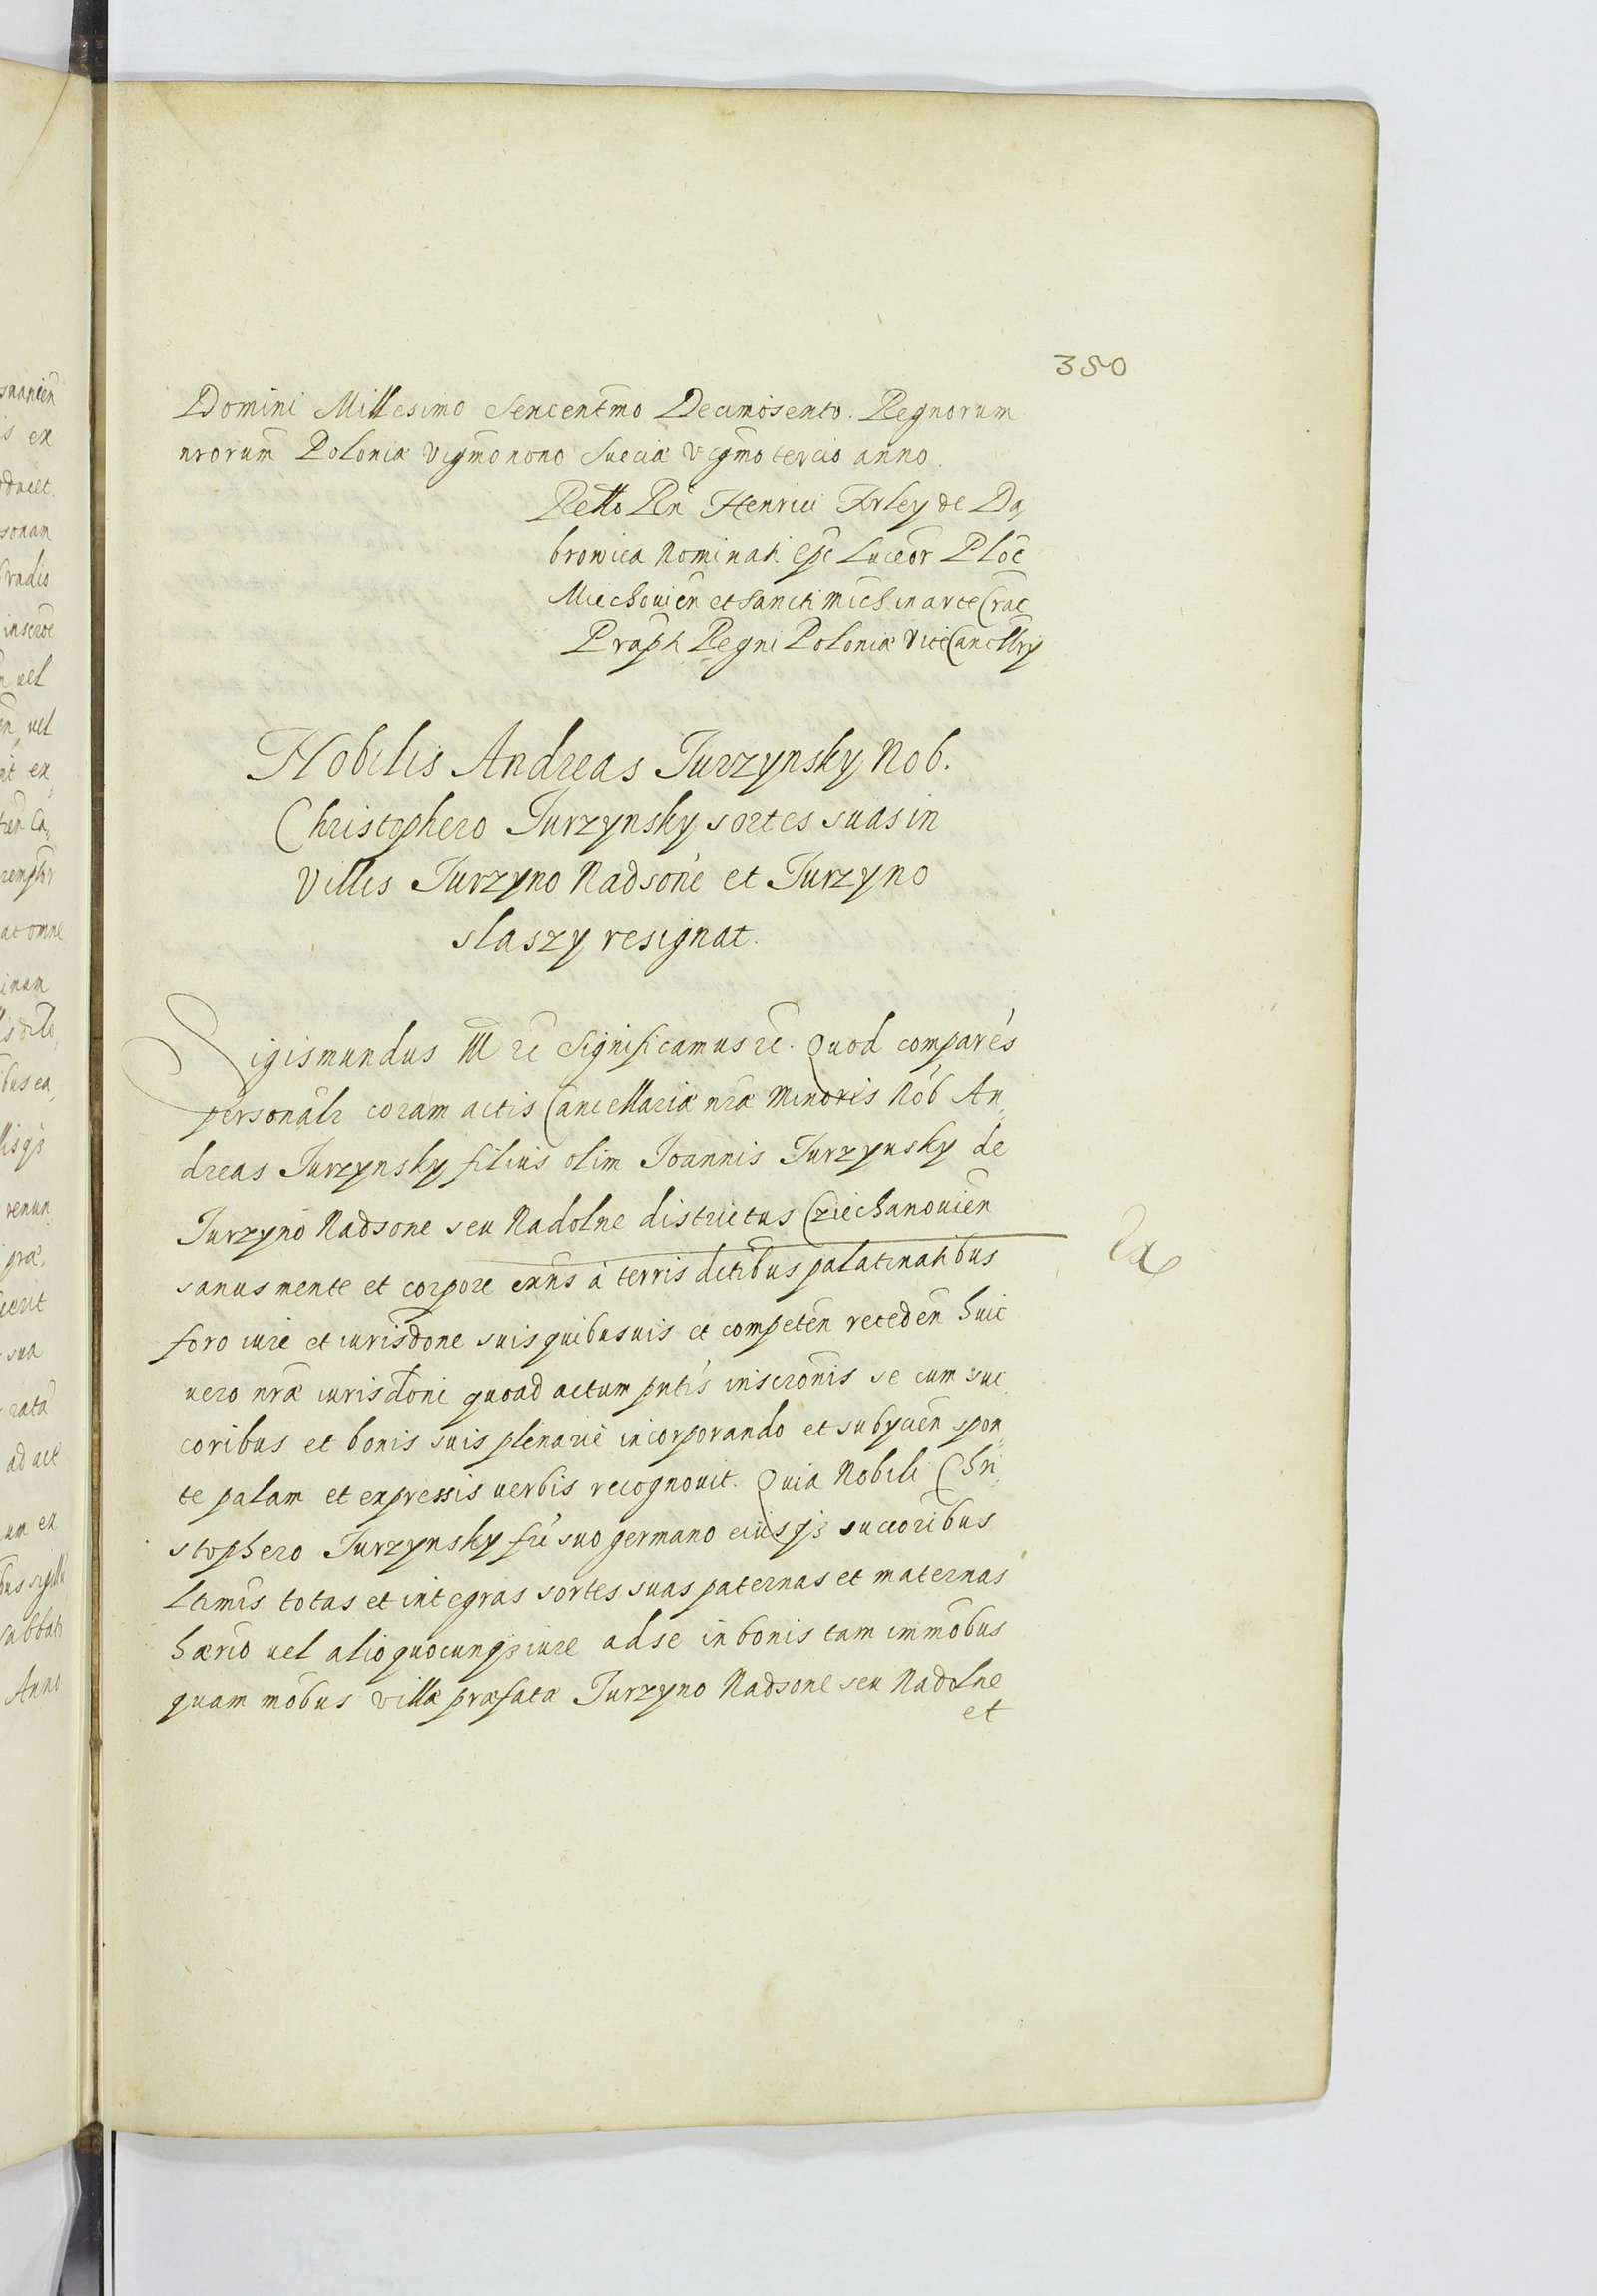 350
Domini Millesimo Sexcentmo Decimosexto. Regnorum
nrorum Poloniæ Vigmo nono Sueciæ Vigmo tercio anno.
Retto Rn Henrici Firley de Da,
browica Nominati Epi Luceor Ploc
Miechouien et Sancti Mich in arce Crac
Præpti Regni Poloniæ ViceCancellrij
Nobilis Andreas Jurzynsky Nob.
Christophero Jurzynsky sortes suas in
Villis Jurzyno Nadsone et Jurzyno
slaszy resignat.
Sigismundus III rc Significamus rc. Quod comparés
personalr coram actis Cancellariæ nræ Minoris Nob An,
dreas Jurzynsky filius olim Joannis Jurzynsky de
Jurzyno Nadsone seu Nadolne districtus Cziechanouien
sanus mente et corpore exns à terris dictibus palatinatibus
foro iure et iurisdone suis quibusuis et competen receden huic
uero nræ iurisdoni quoad actum pntis inscronis se cum suc,
coribus et bonis suis plenariè incorporando et subycien spon,
te palam et expressis uerbis recognouit. Quia Nobili Chri,
stophero Jurzynsky fri suo germano eiusq3 succoribus
ltimis totas et integras sortes suas paternas et maternas
hærio uel alio quocunq3 iure ad se in bonis tam immobus
quam mobus villæ præfatæ Jurzyno Nadsone seu Nadolne
et